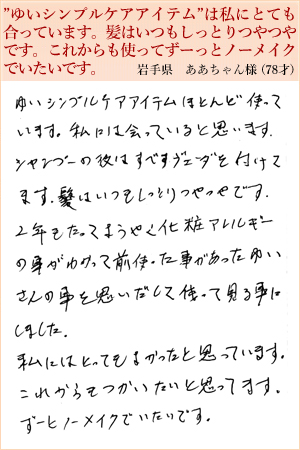 ”ゆいシンプルケアアイテム”は私にとても
合っています。髪はいつもしっとりつやつや
です。これからも使ってずーっとノーメイク
でいたいです。
岩手県　ああちゃん様 (78才)
ゆいシンプルケアアイテムほとんど使って
います。私には会っていると思います.
シャンプーの後はすぐすヴェーダを付けて
ます. 髪はいつもしっとりつやつやです.
2年もたってようやく化粧アレルギー
の事がわかって前使った事があったゆい
さんの事を思いだして使って見る事に
しました.
私にはとってもよかったと思っています.
これからもつかいたいと思ってます.
ずーとノーメイクでいたいです.